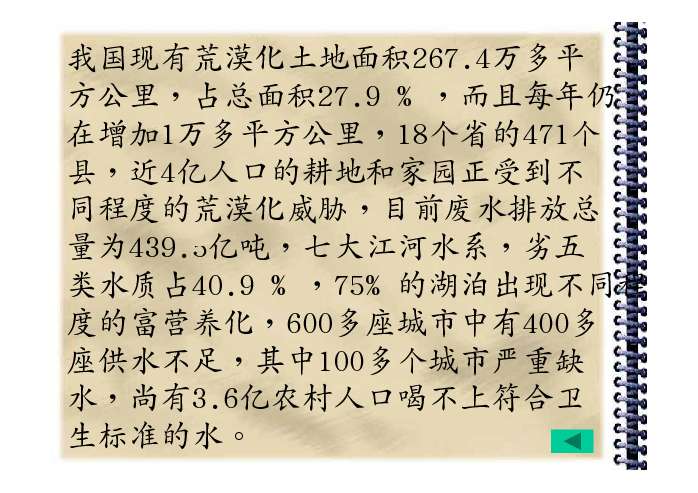 我国现有荒漠化土地面积267.4万多平
方公里，占总面积27.9 % ，而且每年仍
在增加1万多平方公里，18个省的471个
县，近4亿人口的耕地和家园正受到不
同程度的荒漠化威胁，目前废水排放总
量为439.5亿吨，七大江河水系，劣五
类水质占40.9 % ，75% 的湖泊出现不同程
度的富营养化，600多座城市中有400多
座供水不足，其中100多个城市严重缺
水，尚有3.6亿农村人口喝不上符合卫
生标准的水。